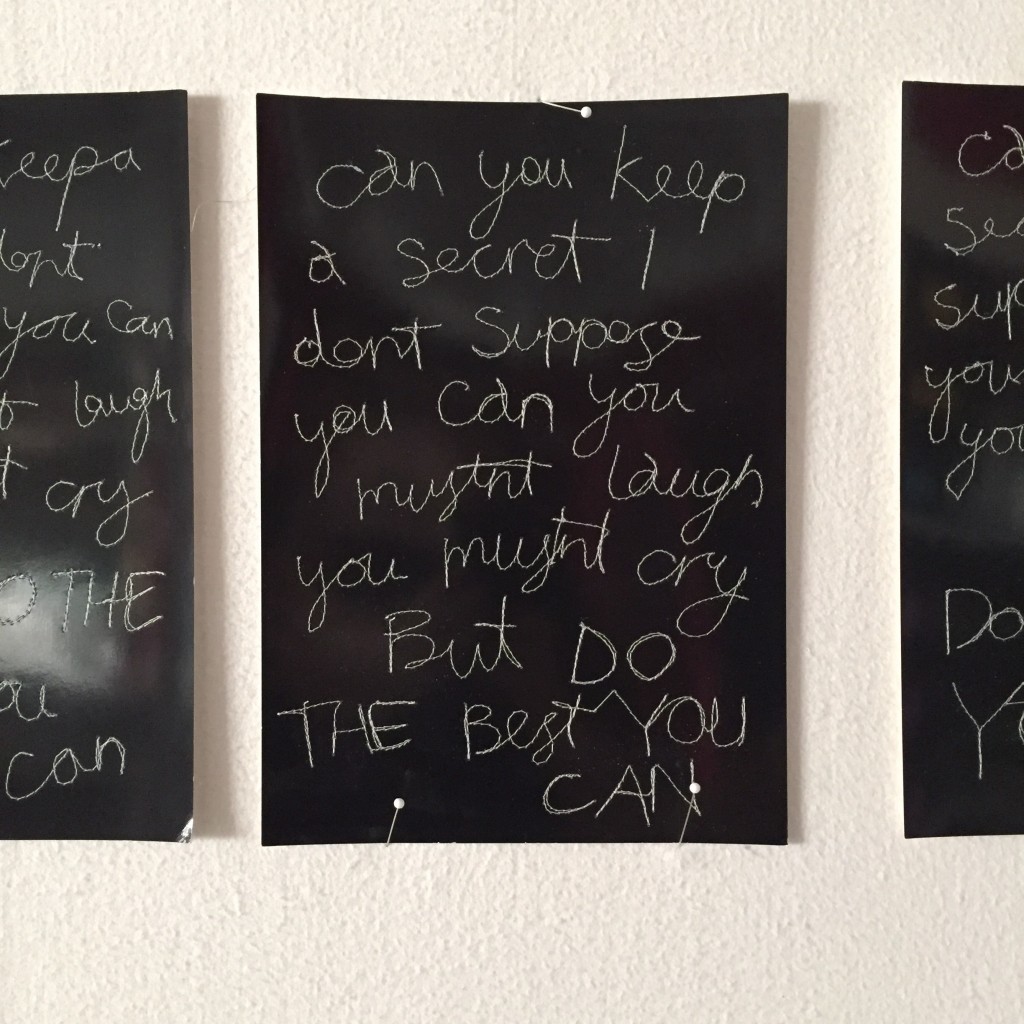 keep a
dont
you can
laugh
cry
THE
can
can you keep
a secret I
dont suppose
you can you
mustnt laugh
you mustnt cry
But DO
THE Best YOU
CAN